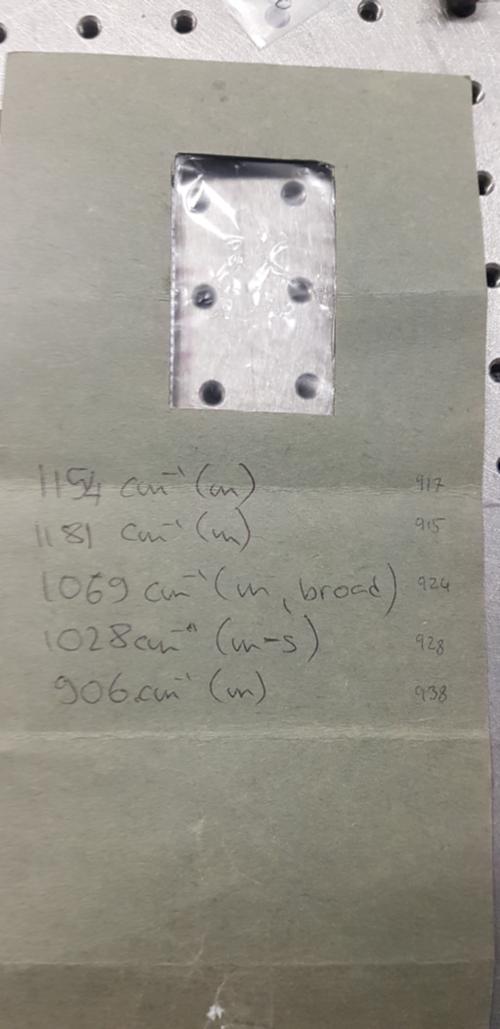 1154 cm⁻¹ (m) 917
1181 cm⁻¹ (m) 915
1069 cm⁻¹ (m, broad) 924
1028 cm⁻¹ (m-s) 928
906 cm⁻¹ (m) 938